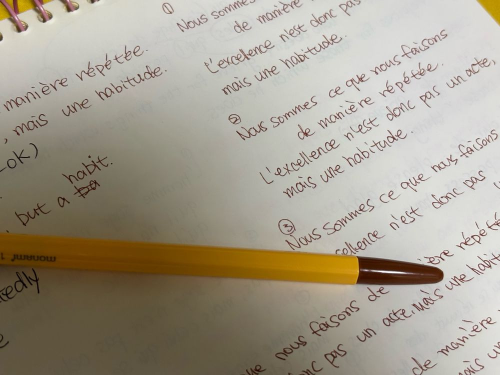 manière répétée.
, mais une habitude.
OK)
habit.
, but a ba
edly
monami
①
Nous sommes
de manière
L'excellence n'est donc pas
mais une habitude.
②
Nous sommes ce que nous faisons
de manière répétée.
L'excellence n'est donc pas un acte,
mais une habitude.
③
Nous sommes ce que nous faisons
ellence n'est donc pas
nous faisons de manière répétée
pas un acte, mais une habit
de manière
mais un